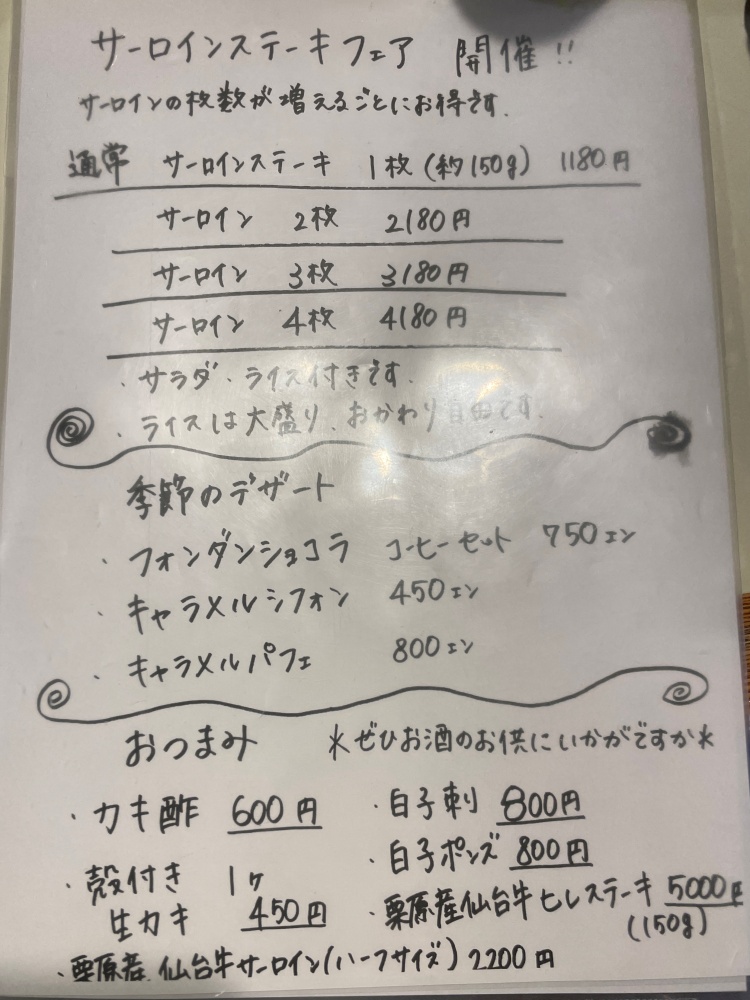 サーロインステーキフェア 開催!!
サーロインの枚数が増えるごとにお得です.
通常 サーロインステーキ 1枚(約150g) 1180円
サーロイン 2枚 2180円
サーロイン 3枚 3180円
サーロイン 4枚 4180円
・サラダ・ライス付きです.
・ライスは大盛り.おかわり自由です.
季節のデザート
・フォンダンショコラ コーヒーセット 750エン
・キャラメルシフォン 450エン
・キャラメルパフェ 800エン
おつまみ *ぜひお酒のお供にいかがですか*
・カキ酢 600円
・殻付き 1ヶ
生カキ 450円
・白子刺 800円
・白子ポンズ 800円
・栗原産仙台牛ヒレステーキ 5000円
(150g)
・栗原産.仙台牛サーロイン(ハーフサイズ) 2200円